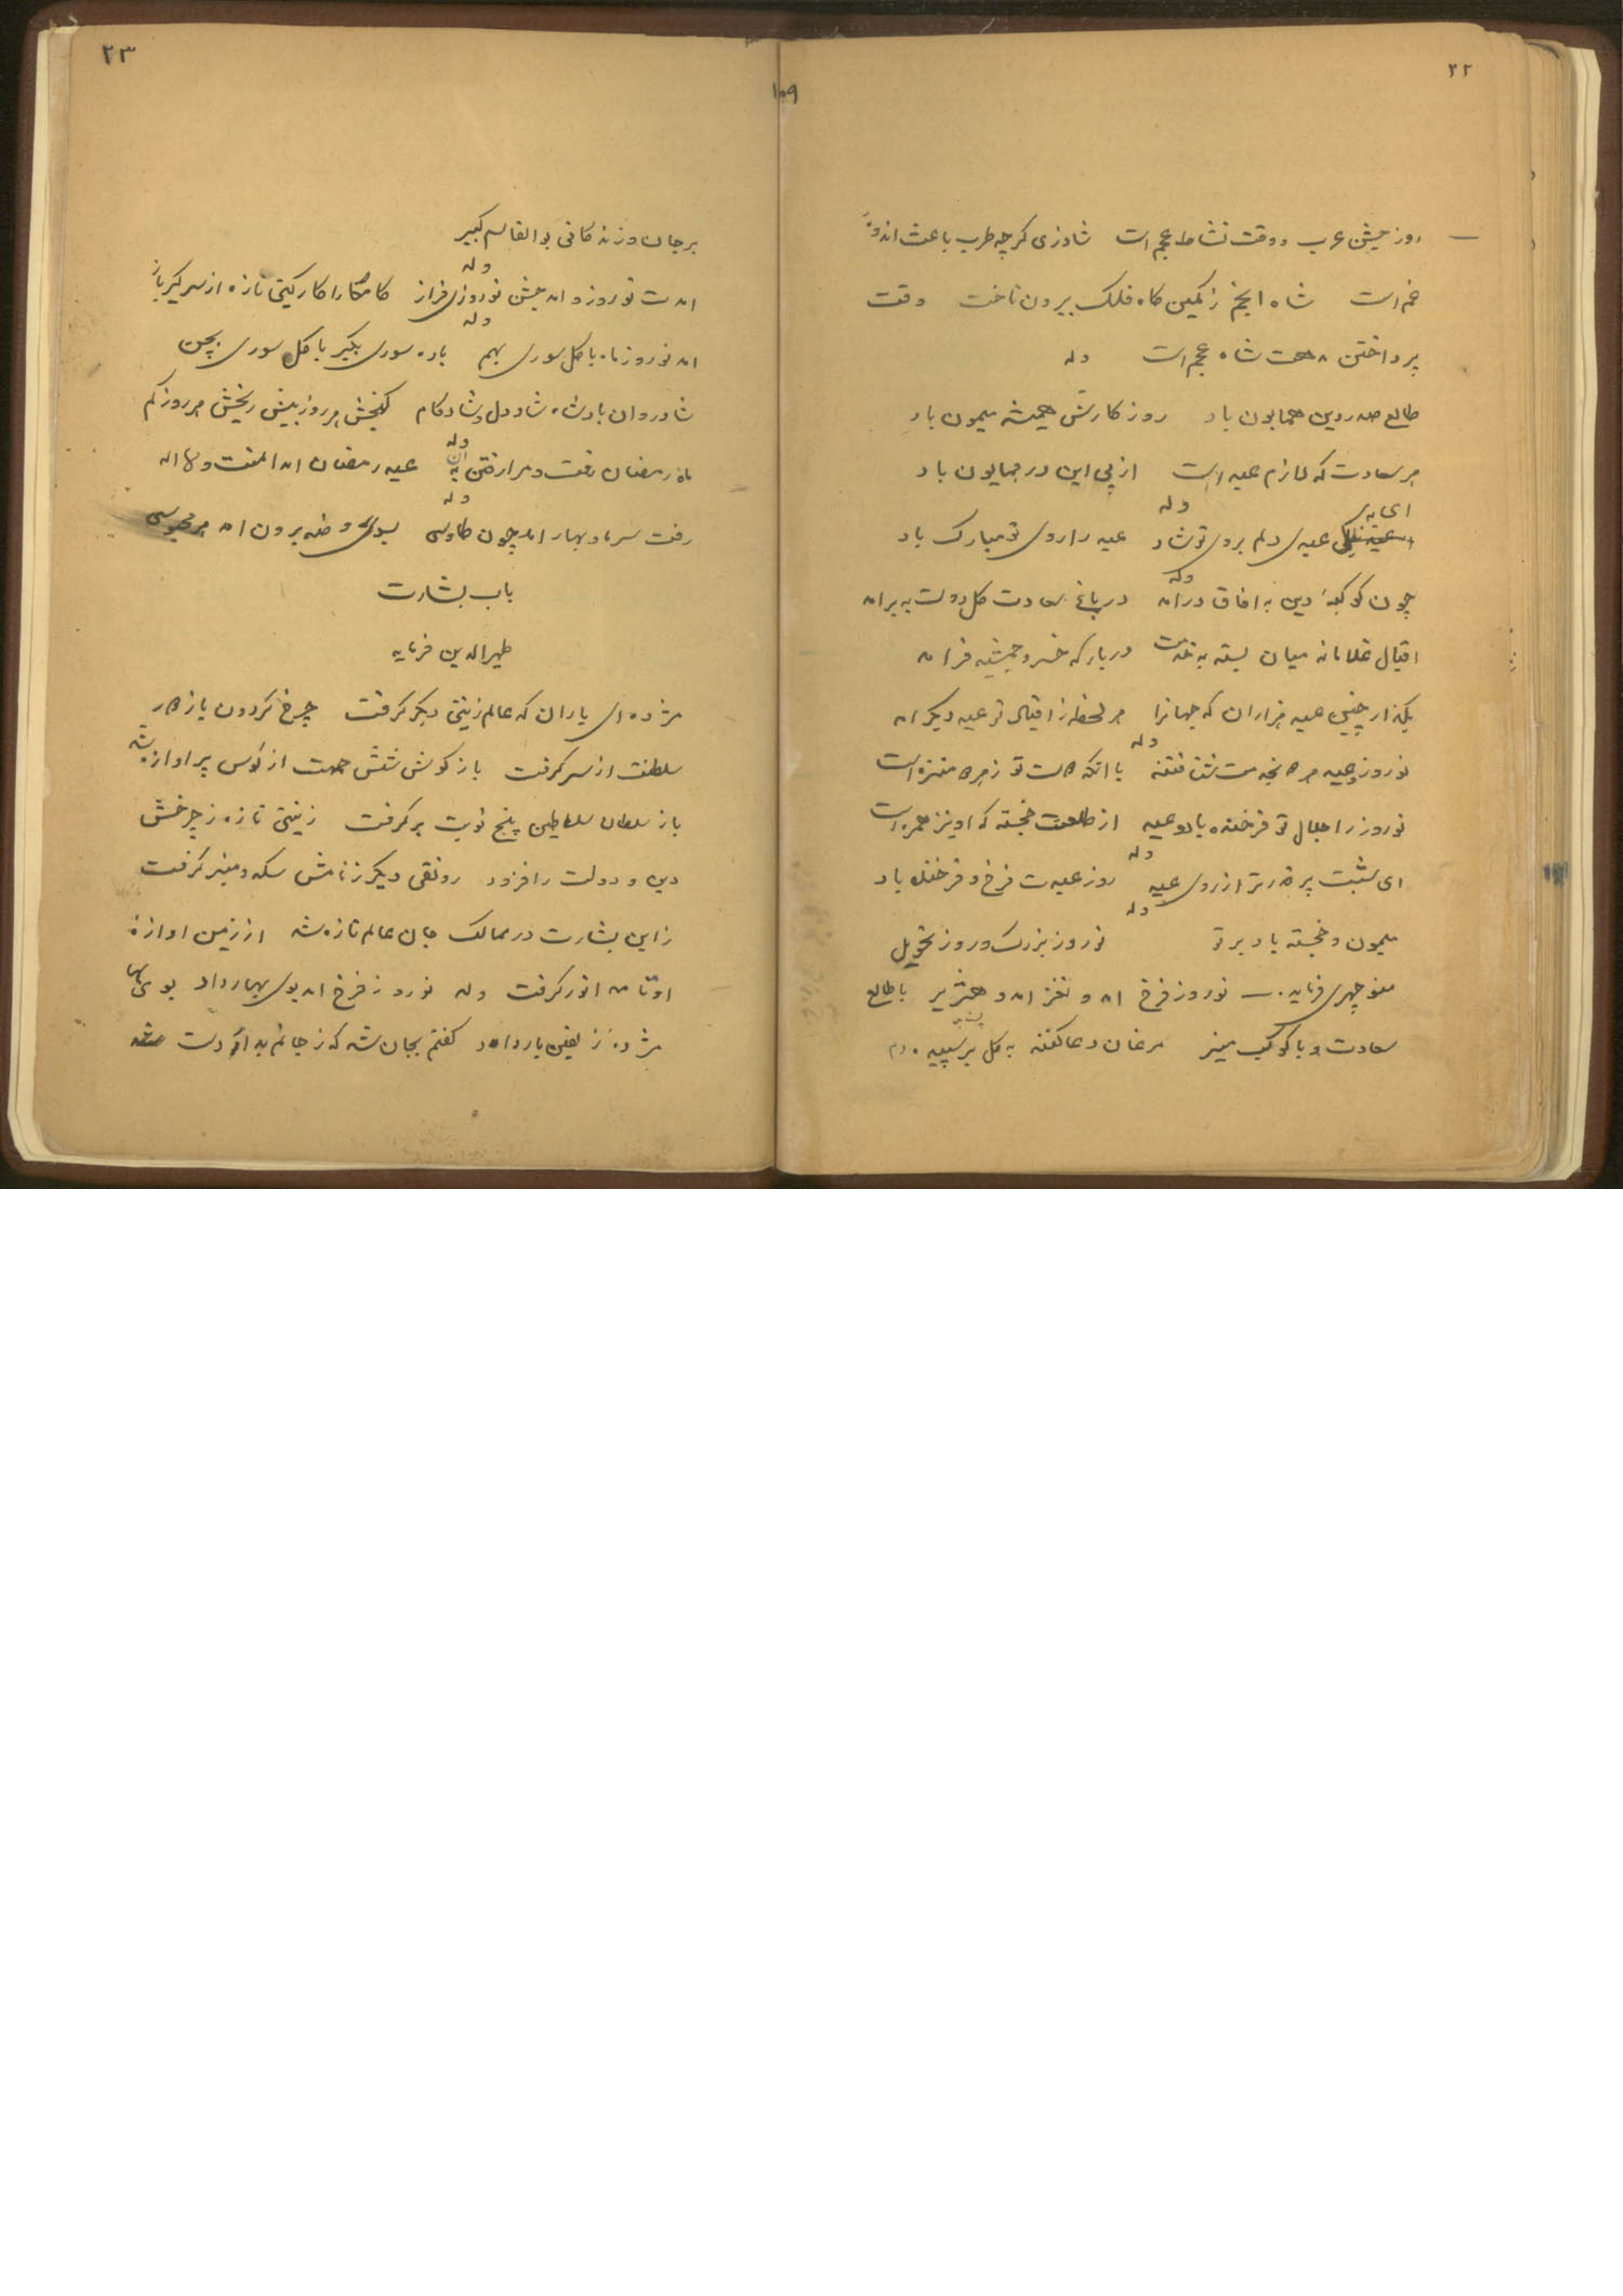 ۲۲
روز جشن عرب و وقت نشاط عجم است شادزی کرچه طرب باعث اندوه
غم است شاه انجم ز کمین کاه فلک بیرون تاخت وقت
پرداختن شاه عجم است وله
طالع صدر دین همایون باد روز کارش همیشه میمون باد
هر سعادت که لازم عید است از پی این در همایون باد
وله
ای بتو عیدی دلم بروی تو شاد عید را روی تو مبارک باد
وله
چون کوکبهٔ دین به افاق درامد در باغ سعادت کل دولت به برامد
اقبال غلامانه میان بسته به خدمت در بارکه خسرو جمشید فرامد
بکذار چنین عید هزاران که جهانرا هر لحظه ز اقبال تو عید دیکر امد
وله
نوروز و عید با انکه تو ز هر منزه است
نوروز را جلال تو فرخنده باد و عید از طلعت خجسته که او نیز همره است
وله
ای شبت پر قدرتر از روی عید روز عیدت فرخ و فرخنده باد
وله
میمون و خجسته باد بر تو نوروز بزرک و روز تحویل
منوچهری فرماید نوروز فرخ امد و نغز امد و هژیر با طالع
سعادت و با کوکب منیر مرغان دعا کنند به کل بر سپیده دم
۲۳
۱۰۹
بر جان و زندکانی بوالقاسم کبیر
وله
امدت نوروز و امد جشن نوروزی فراز کامکارا کار کیتی تازه از سر کیر باز
وله
امد نوروز ماه با کل سوری بهم باده سوری بکیر با کل سوری بچم
شادروان باد شاه شاددل و شادکام کنجش هر روز بیش رنجش هر روز کم
وله
ماه رمضان رفت و مرا رفتن آن به عید رمضان امد المنت و لله
وله
رفت سرما و بهار امد چون طاوسی بسوی روضه برون امد هر محبوسی
باب بشارت
ظهیرالدین فرماید
مژده ای یاران که عالم زینتی دیکر کرفت چرخ کردون باز کار
سلطنت از سر کرفت باز کوش شش جهت از کوس پر اوازه شد
باز سلطان سلاطین پنج نوبت بر کرفت زینتی تازه ز چرخش
دین و دولت را فزود رونقی دیکر ز نامش سکه و منبر کرفت
زاین بشارت در ممالک جان عالم تازه شد از زمین اوازهٔ
او تا مه انور کرفت وله نوروز فرخ امد بوی بهار داد بوی بهار
مژده ز لفین یار داد کفتم بجان شد که ز جانم به او دست